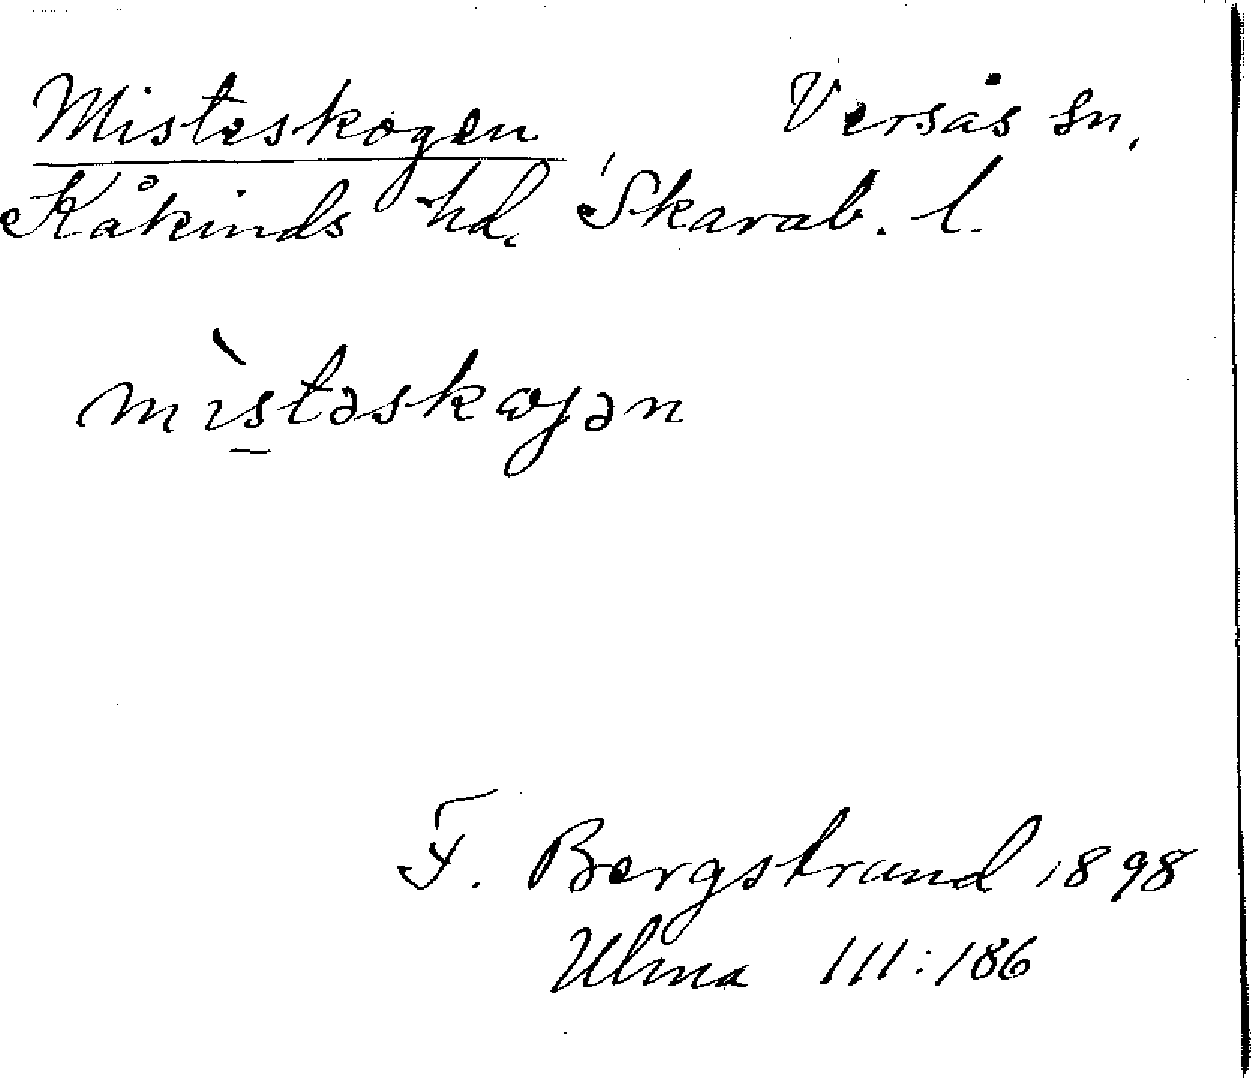 Misteskogen Versås sn,
Kåkinds hd, Skarab. l.
mìstəskoɡən
F. Bergstrand 1898
Ulma 111:186